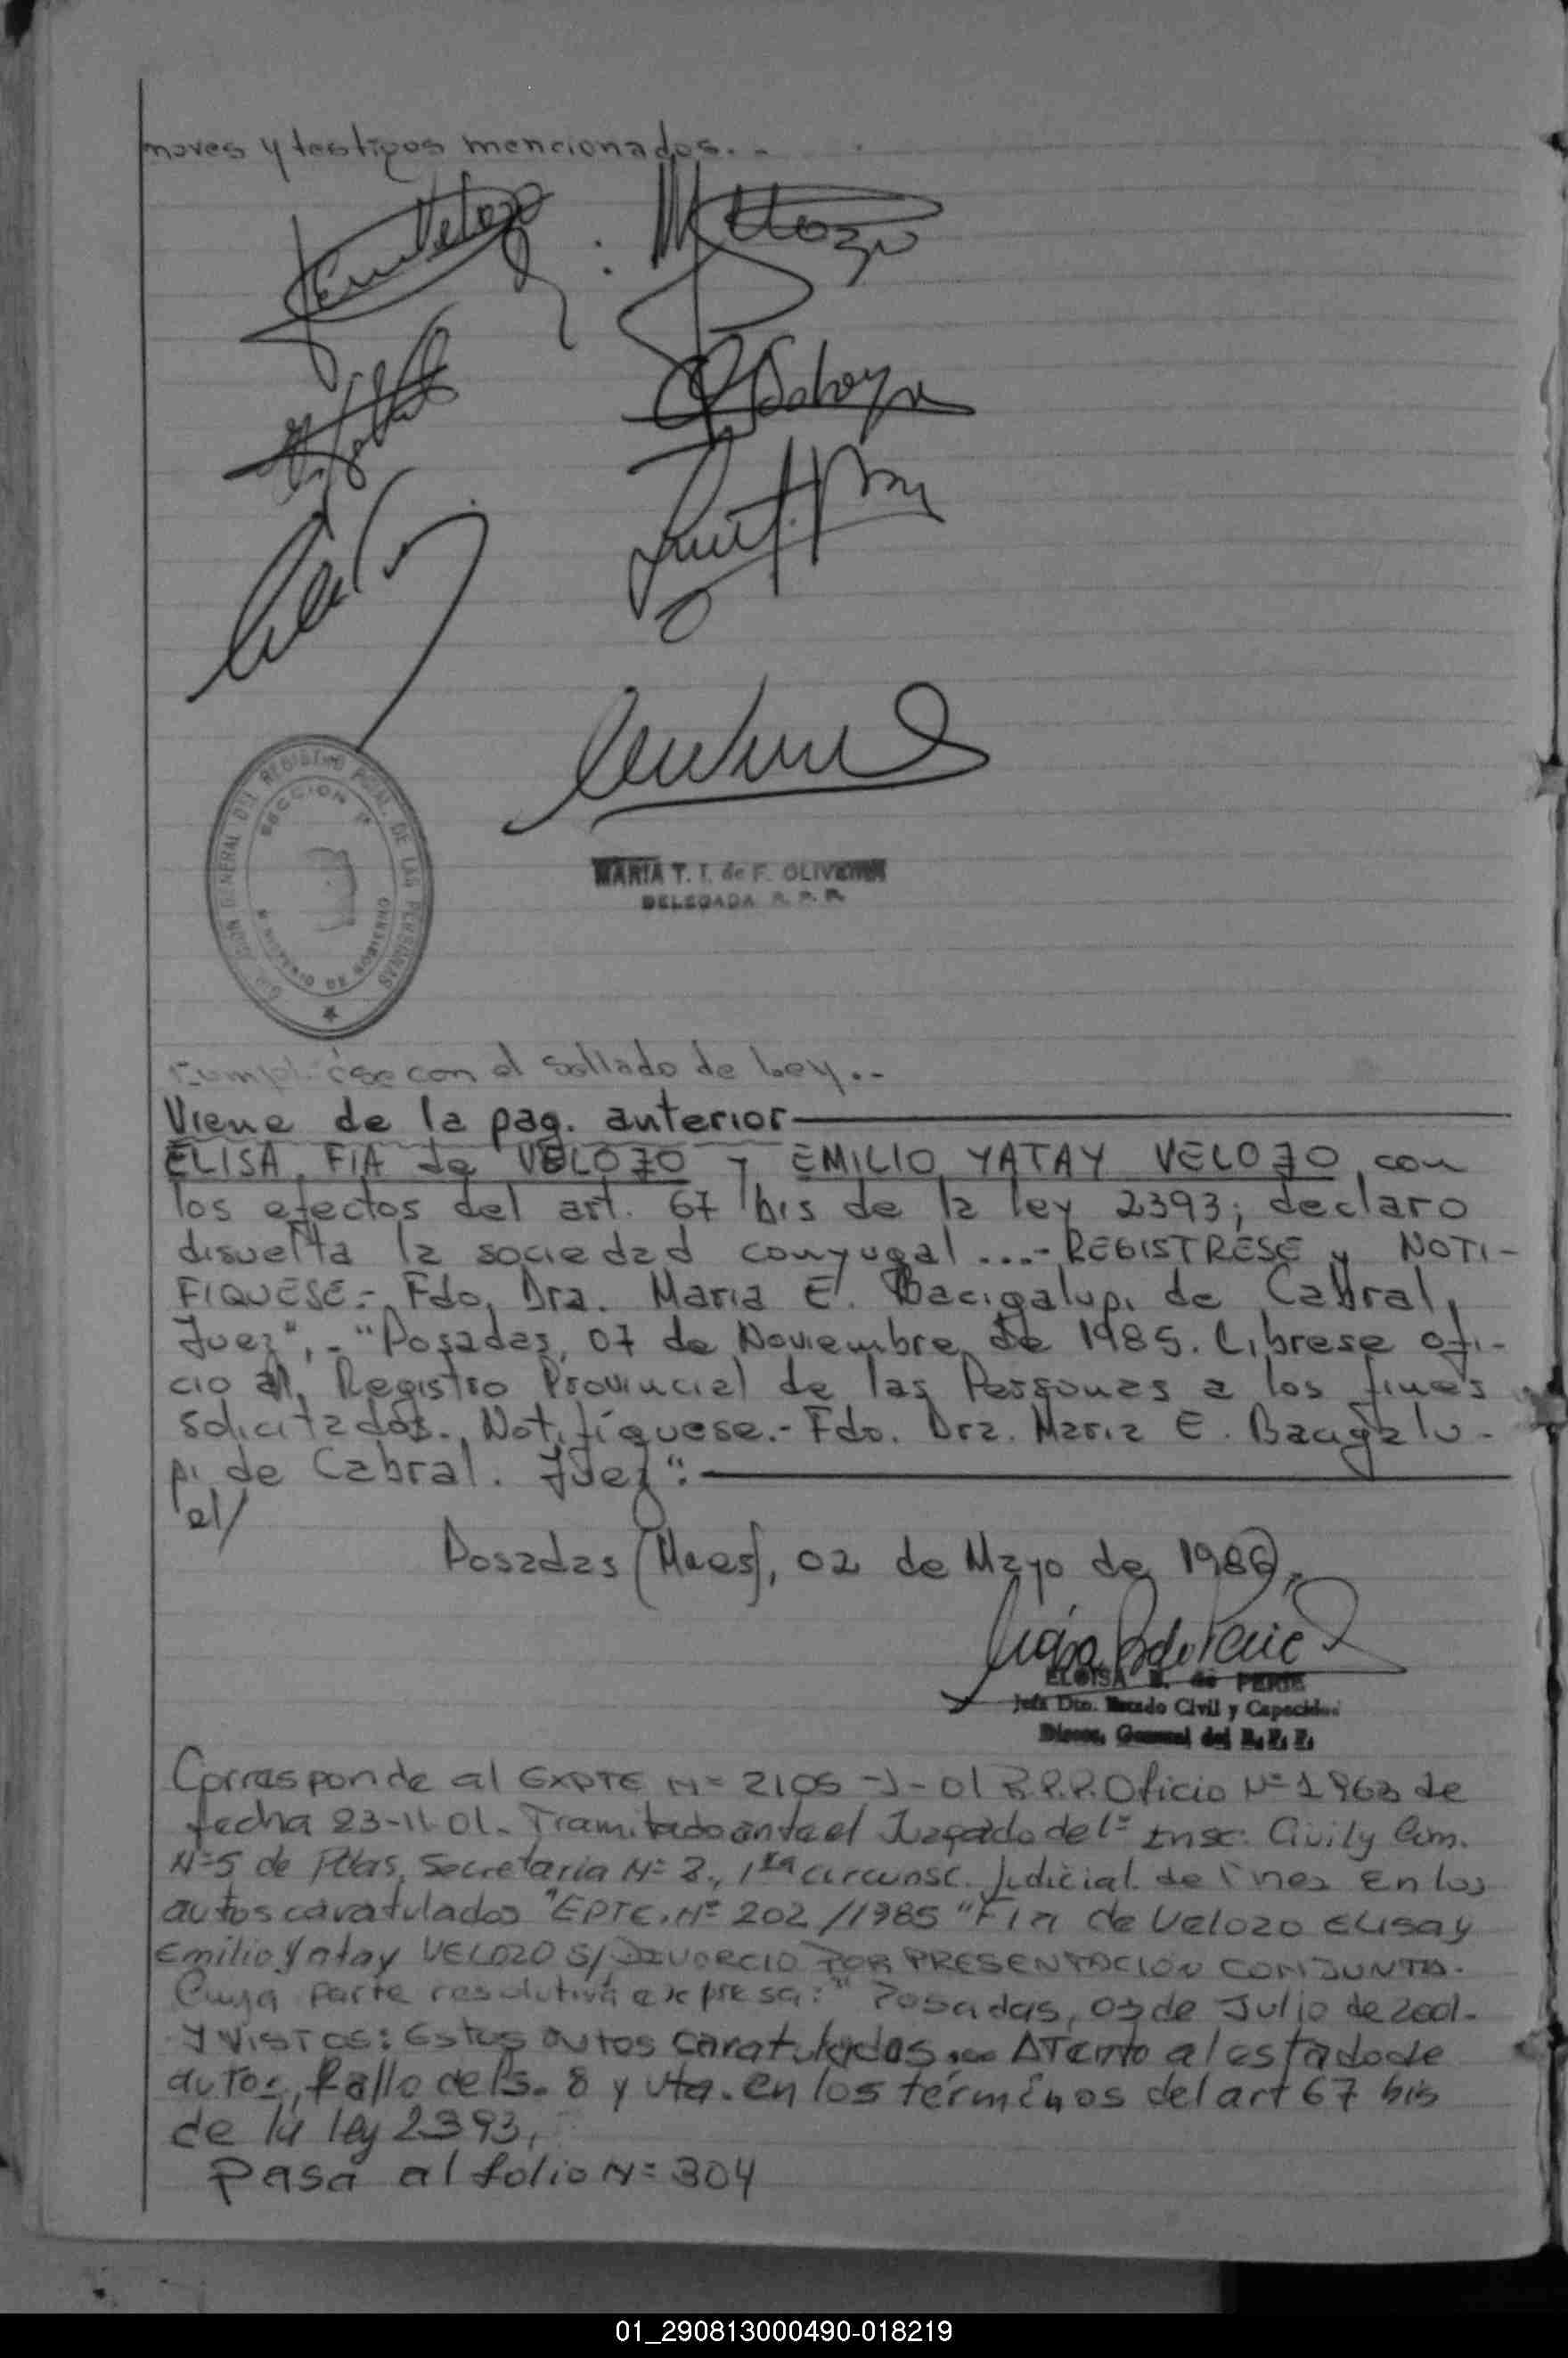 mores y testigos mencionados. -
Em Velozo
MARIA T. I. de F. OLIVEIRA
DELEGADA R. P. P.
GENERAL DEL REGISTRO PCIAL. DE LAS PERSONAS
SECCION
con el sellado de Ley..-
Viene de la pag. anterior
ELISA FIA de VELOZO y EMILIO YATAY VELOZO, con
los efectos del art. 67 bis de la ley 2393; declaro
disuelta la sociedad conyugal...- REGISTRESE y NOTI-
FIQUESE.- Fdo, Dra. Maria E. Bacigalupi de Cabral,
Juez",- "Posadas, 07 de Noviembre de 1985. Librese ofi-
cio al Registro Provincial de las Personas a los fines
solicitados. Notifíquese.- Fdo. Dra. Maria E. Bacigalu-
pi de Cabral. Juez".
el/
Posadas (Mnes), 02 de Mayo de 1986.-
ELOISA B. de PERIE
Jefa Dto. Estado Civil y Capacidad
Direcc. General del R. P. P.
Corresponde al EXPTE Nº 2105-J-01 R.P.P. Oficio Nº 1963 de
fecha 23-11-01. Tramitado ante el Juzgado de 1º Insc. Civil y Com.
Nº 5 de Pdas, Secretaria Nº 2., 1ra circunsc. Judicial de Mnes En los
autos caratulados "EPTE. Nº 202/1985 "FIA de Velozo Elisa y
Emilio Yatay VELOZO S/ DIVORCIO POR PRESENTACION CONJUNTA.
Cuya parte resolutiva expresa: "Posadas, 03 de Julio de 2001.
Y VISTOS: Estos autos caratulados... ATento al estado de
autos, fallo de fs. 8 y vta. en los términos del art 67 bis
de la ley 2393,
Pasa al folio Nº 304
01_290813000490-018219